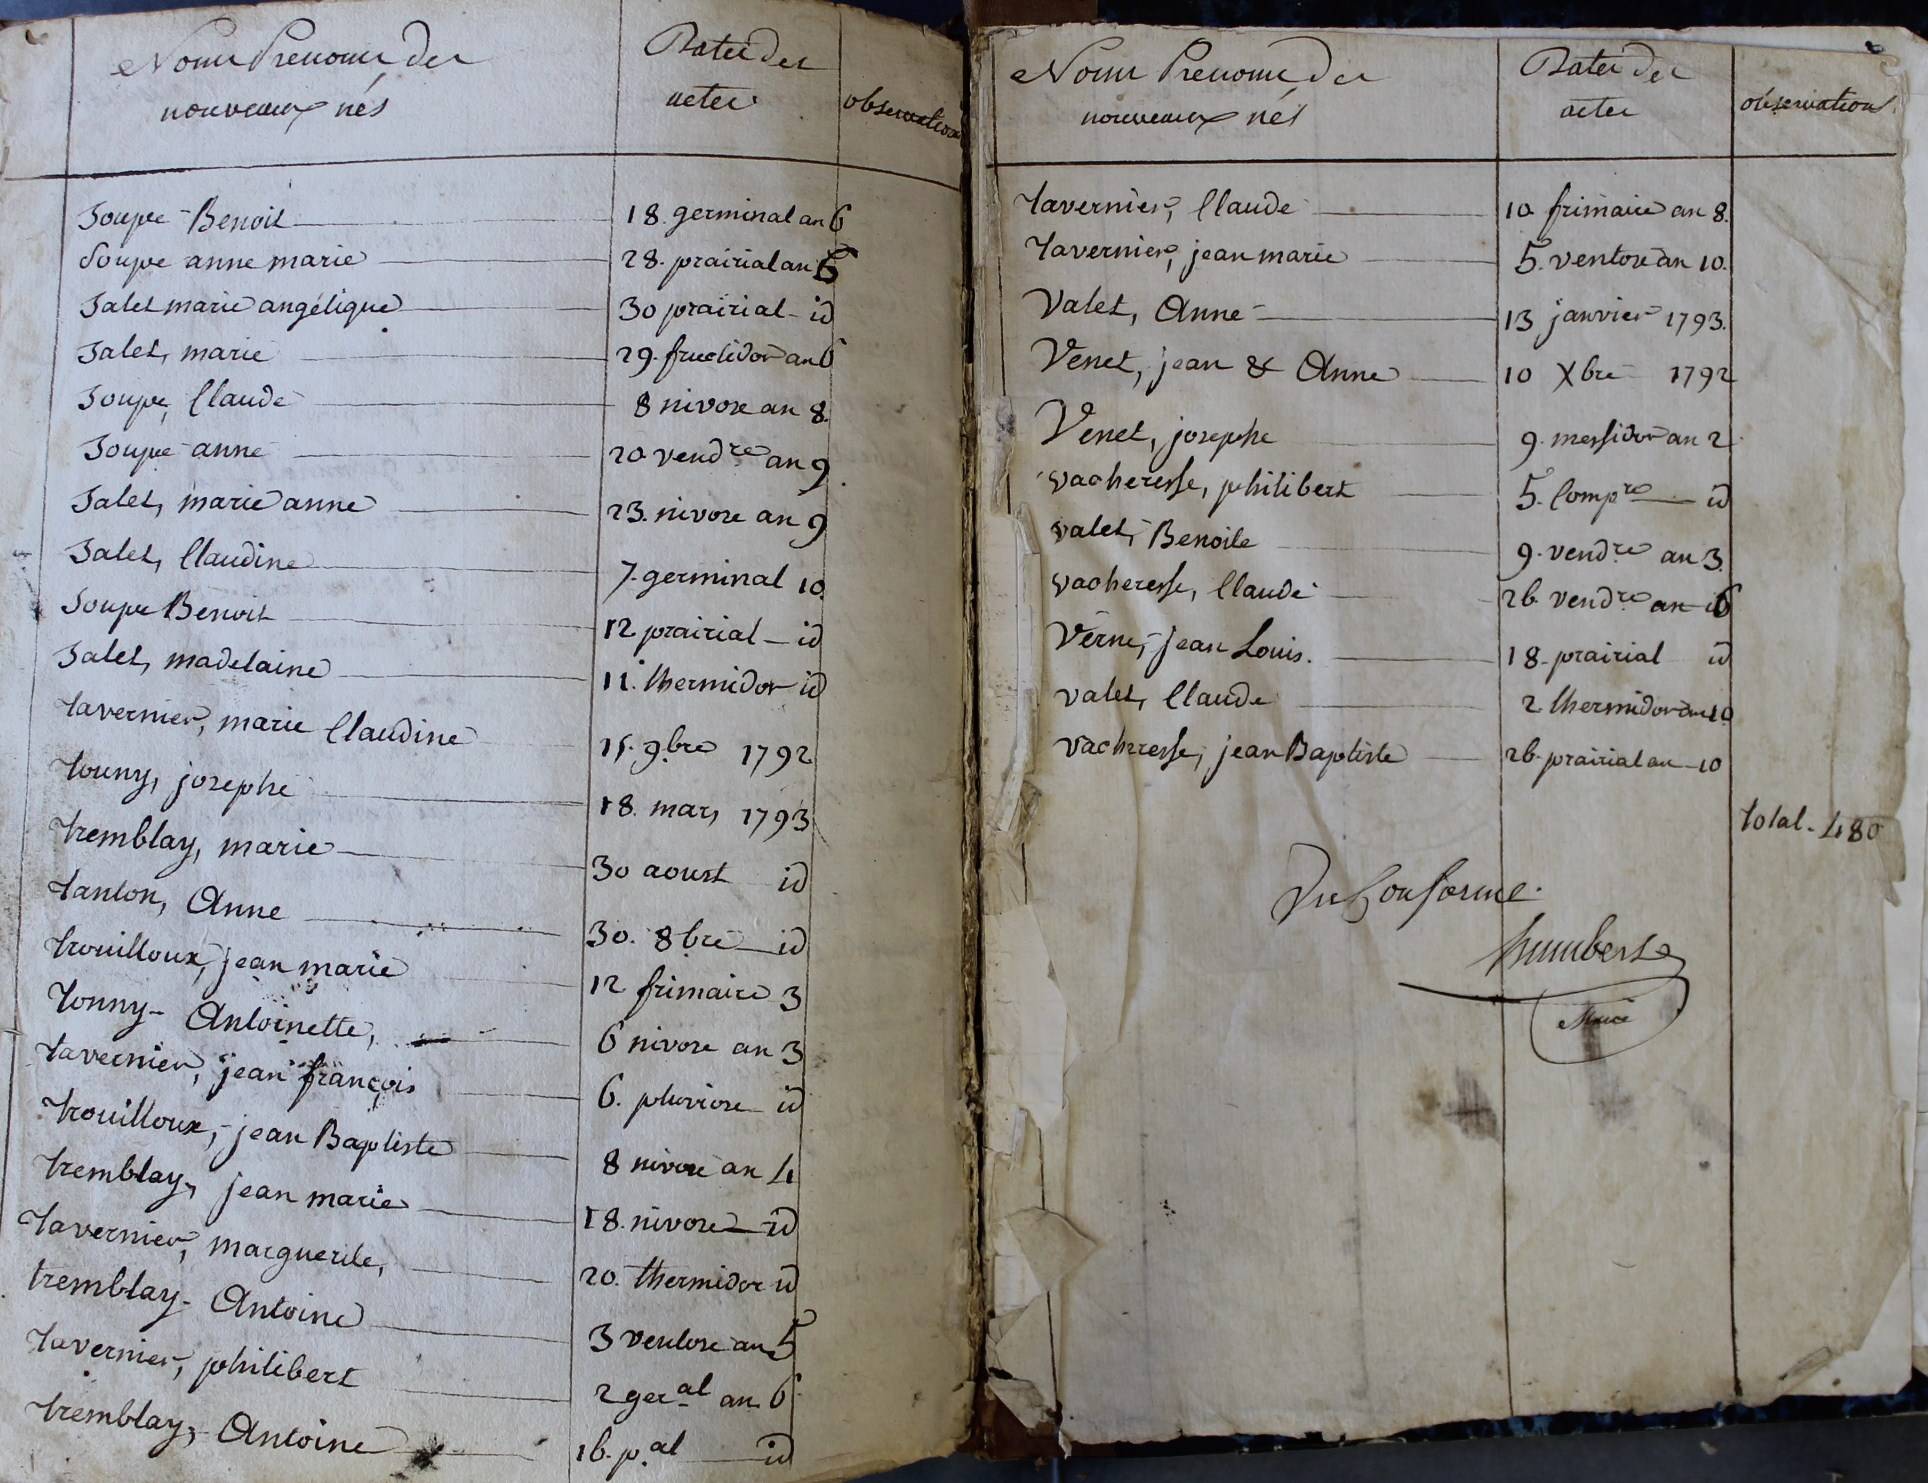 Noms Prenoms des
nouveaux nés
Dates des
actes
observations
Soupe Benoit 18. germinal an 6
Soupe anne marie 28. prairial an 6
Salet marie angélique 30 prairial id
Salet, marie 29. fructidor an 6
Soupe, Claude 8 nivose an 8.
Soupe anne 20 vend.re an 9
Salet, marie anne 23. nivose an 9
Salet, Claudine 7. germinal 10.
Soupe Benoit 12 prairial id
Salet, madelaine 11. thermidor id
tavernier, marie Claudine 15. 9.bre 1792
touny, josephe 18. mars 1793
tremblay, marie 30 aoust id
tanton, Anne 30. 8bre id
trouilloux, jean marie 12 frimaire 3
tonny Antoinette, 6 nivose an 3
tavernier, jean françois 6. pluviose id
trouilloux, jean Baptiste 8 nivose an 4
tremblay, jean marie 18. nivose id
tavernier, marguerite, 20. thermidor id
tremblay Antoine 3 ventose an 5
tavernier, philibert 2 ger.al an 6
tremblay, Antoine 16. p.al id
Noms Prenoms des
nouveaux nés
Dates des
actes
observations
tavernier, Claude 10 frimaire an 8.
tavernier, jean marie 5. ventose an 10.
Valet, Anne 13 janvier 1793.
Venet, jean & Anne 10 Xbre 1792
Venet, josephe 9. messidor an 2
vacheresse, philibert 5. Comp.re id
valet, Benoite 9. vend.re an 3.
vacheresse, Claude 26. vend.re an 6
Verne, jean Louis. 18. prairial id
valet, Claude 2 thermidor an 10
vacheresse, jean Baptiste 26. prairial an 10
total. 480
Vu Conforme.
humbert
Maire